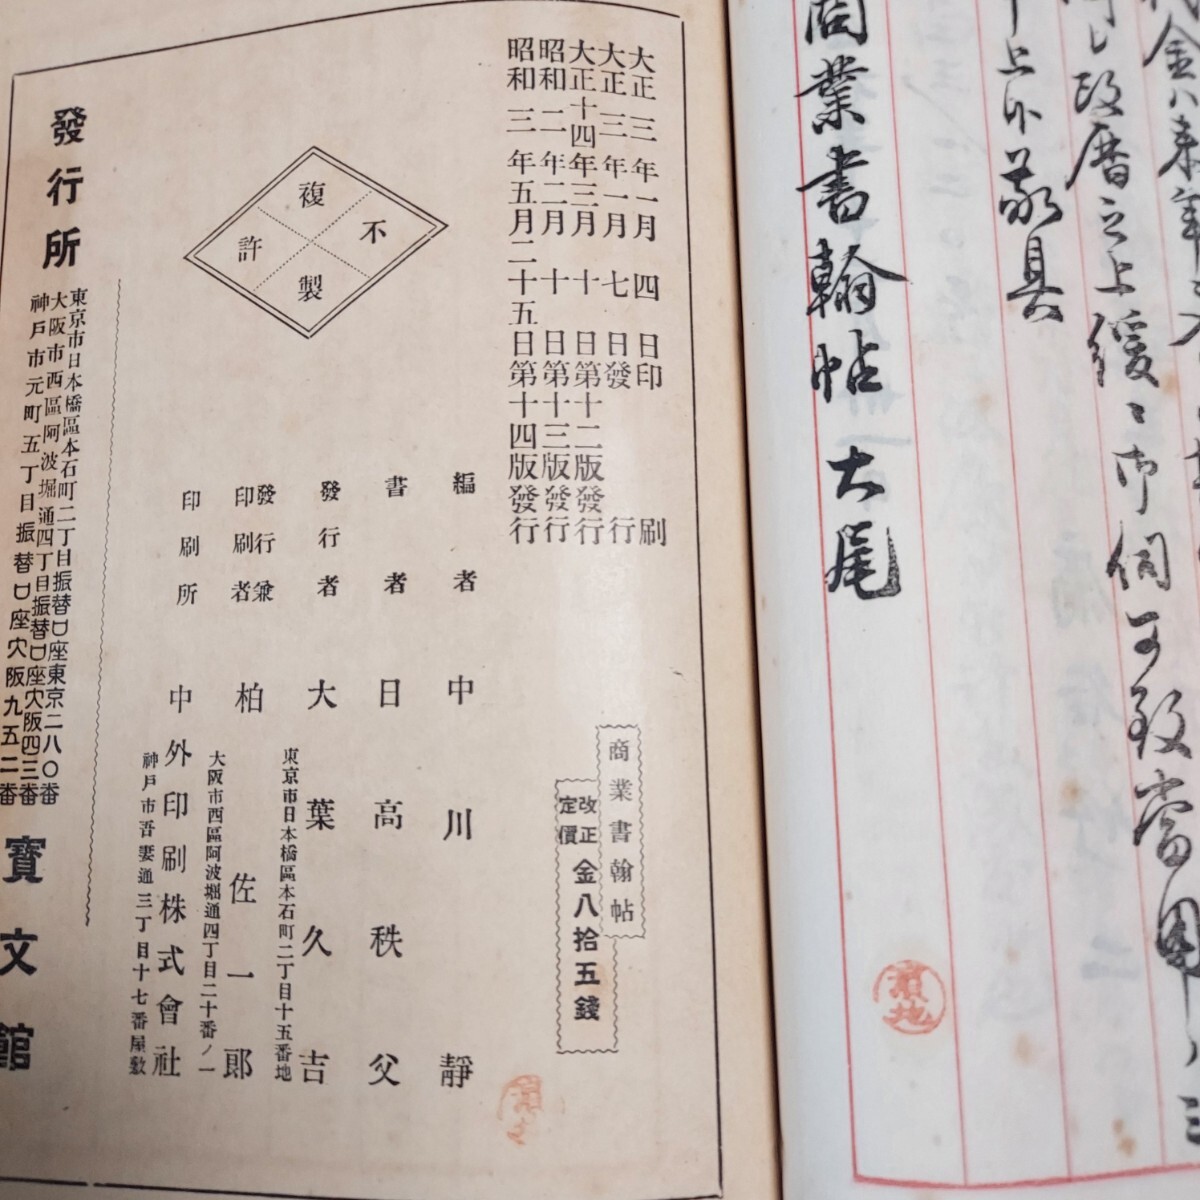 申上候敬具
商業書翰帖大尾
大正三年一月四日印刷
大正三年一月七日發行
大正十四年三月十日第十二版發行
昭和二年二月十日第十三版發行
昭和三年五月二十五日第十四版發行
不許複製
商業書翰帖
改正定價金八拾五錢
編者中川靜
書者日高秩父
發行者大葉久吉
東京市日本橋區本石町二丁目十五番地
發行兼印刷者柏佐一郎
大阪市西區阿波堀通四丁目二十番ノ一
印刷所中外印刷株式會社
神戸市吾妻通三丁目十七番屋敷
發行所
東京市日本橋區本石町二丁目振替口座東京二八〇番
大阪市西區阿波堀通四丁目振替口座大阪四三番
神戸市元町五丁目振替口座大阪九五二番
寶文館